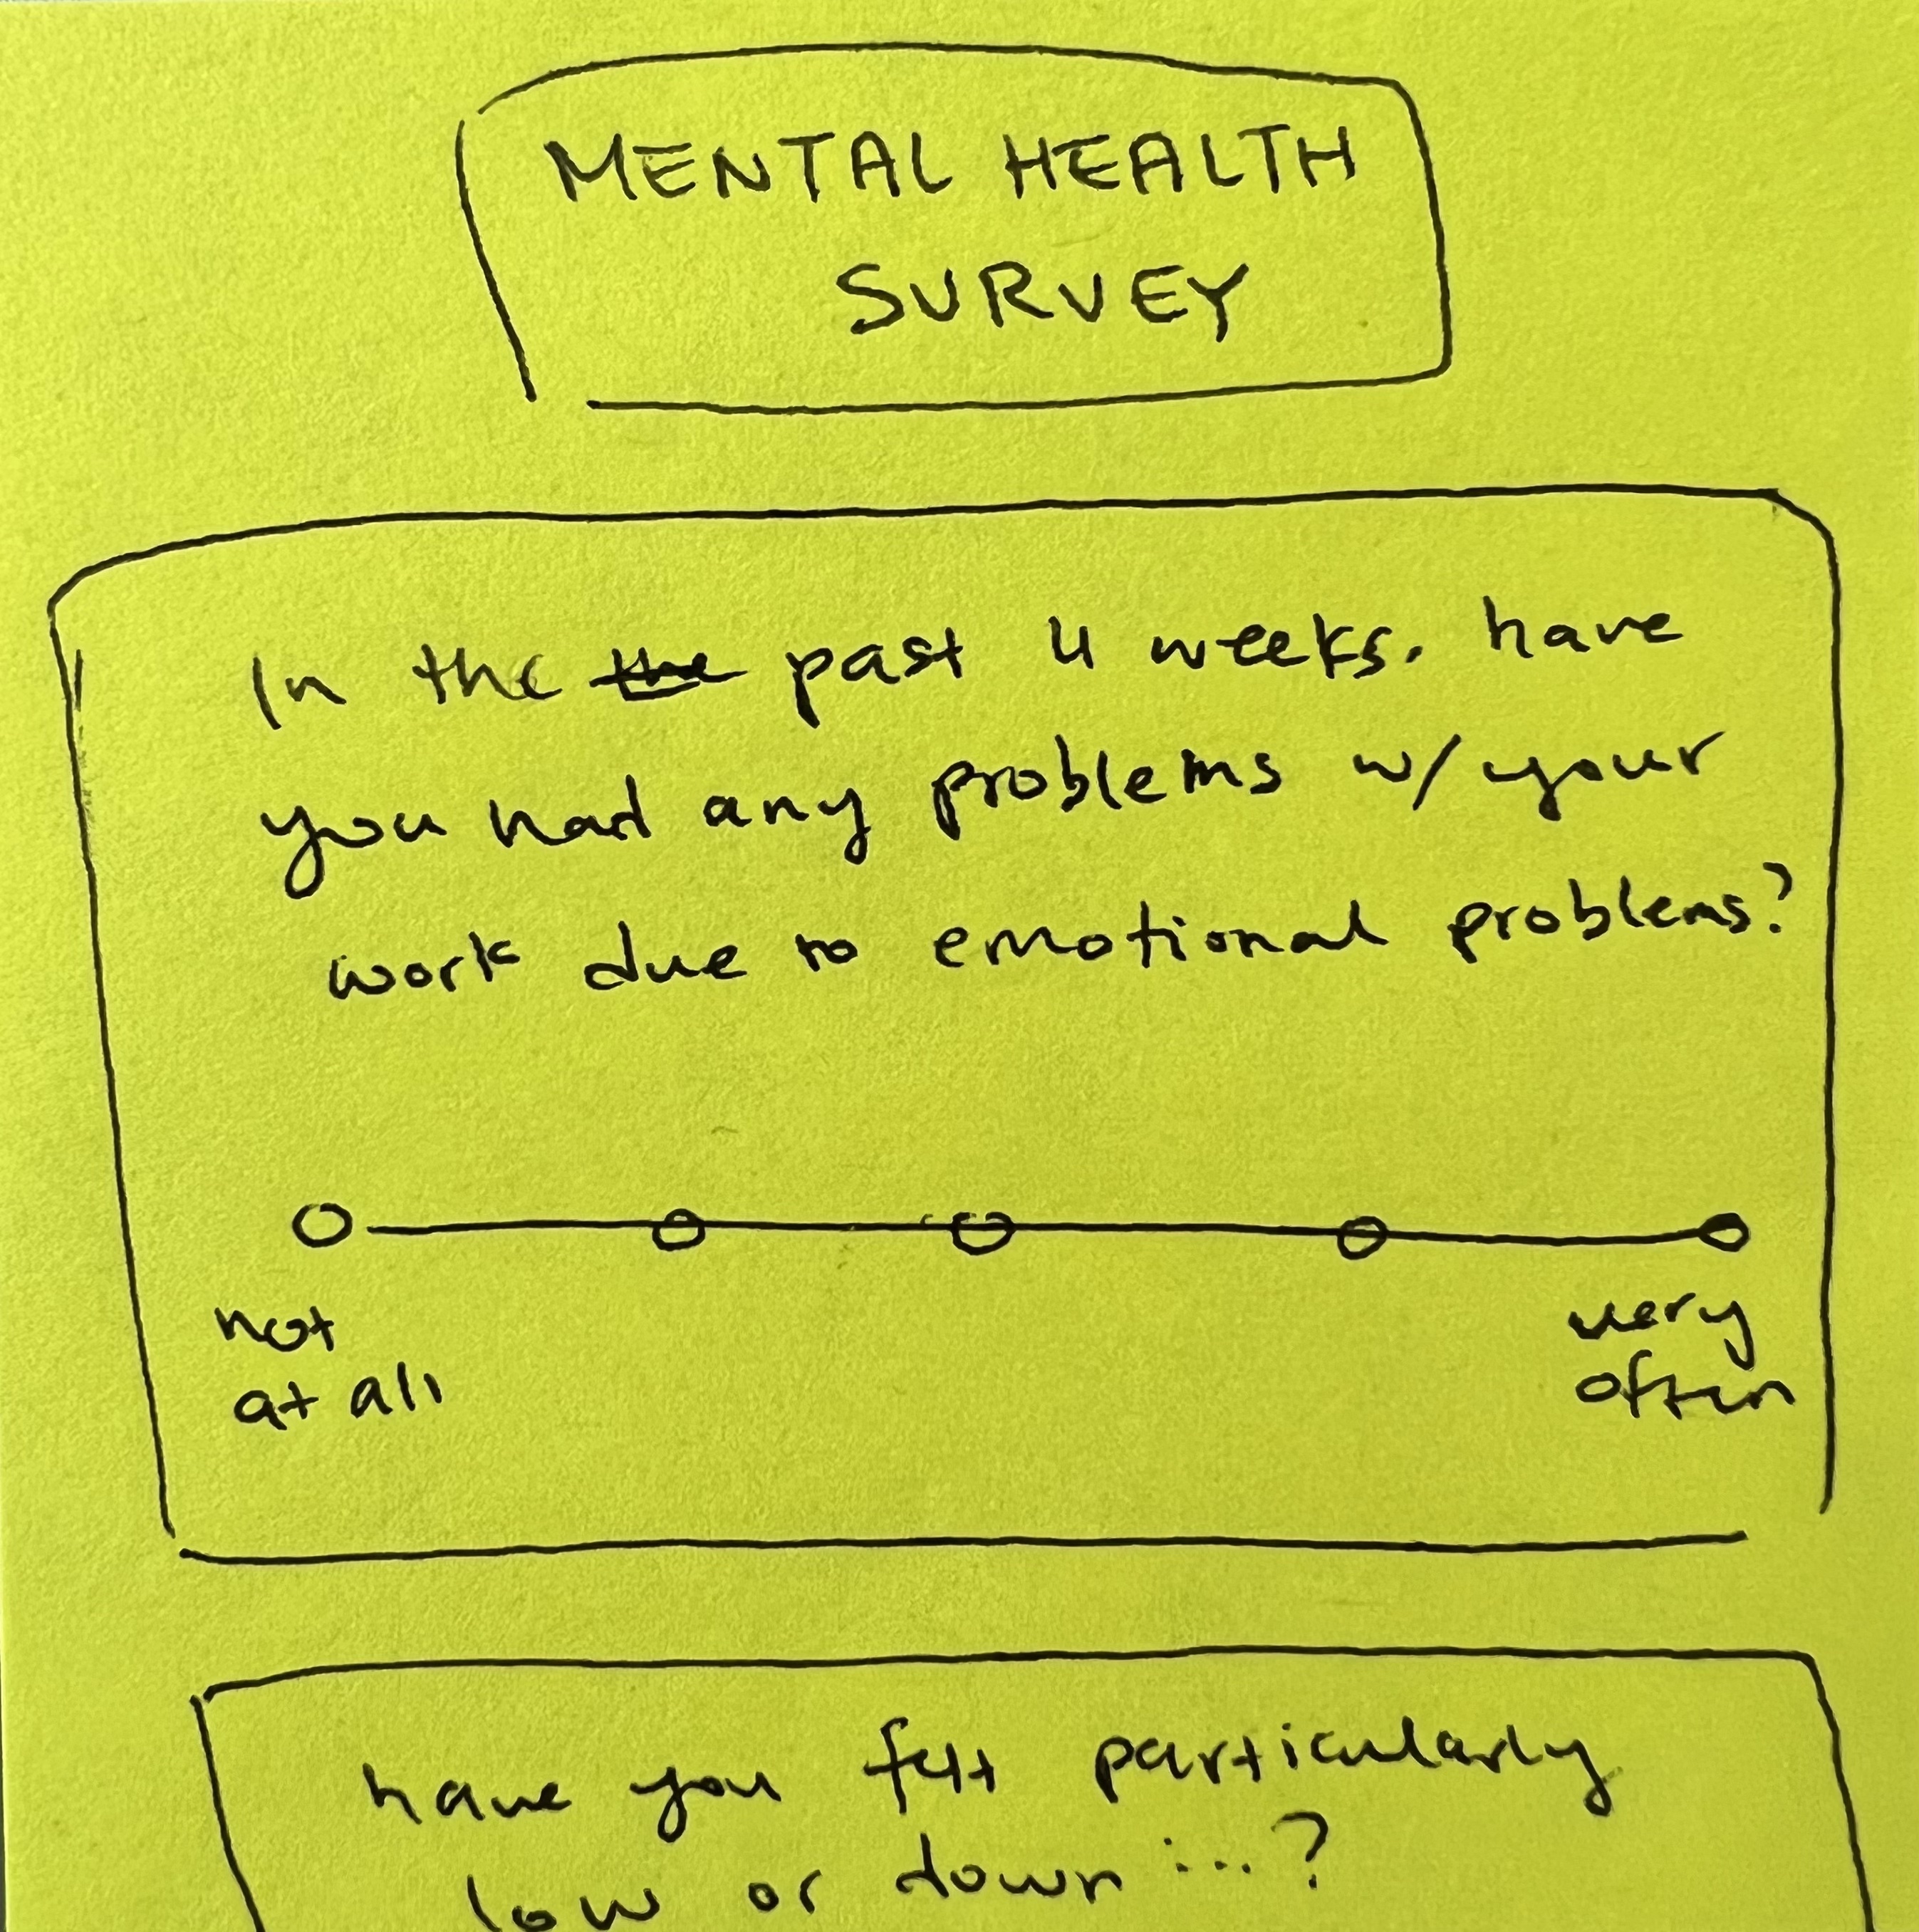 MENTAL HEALTH
SURVEY
In the the past 4 weeks, have
you had any problems w/ your
work due to emotional problems?
not
at all
very
often
have you felt particularly
low or down ...?